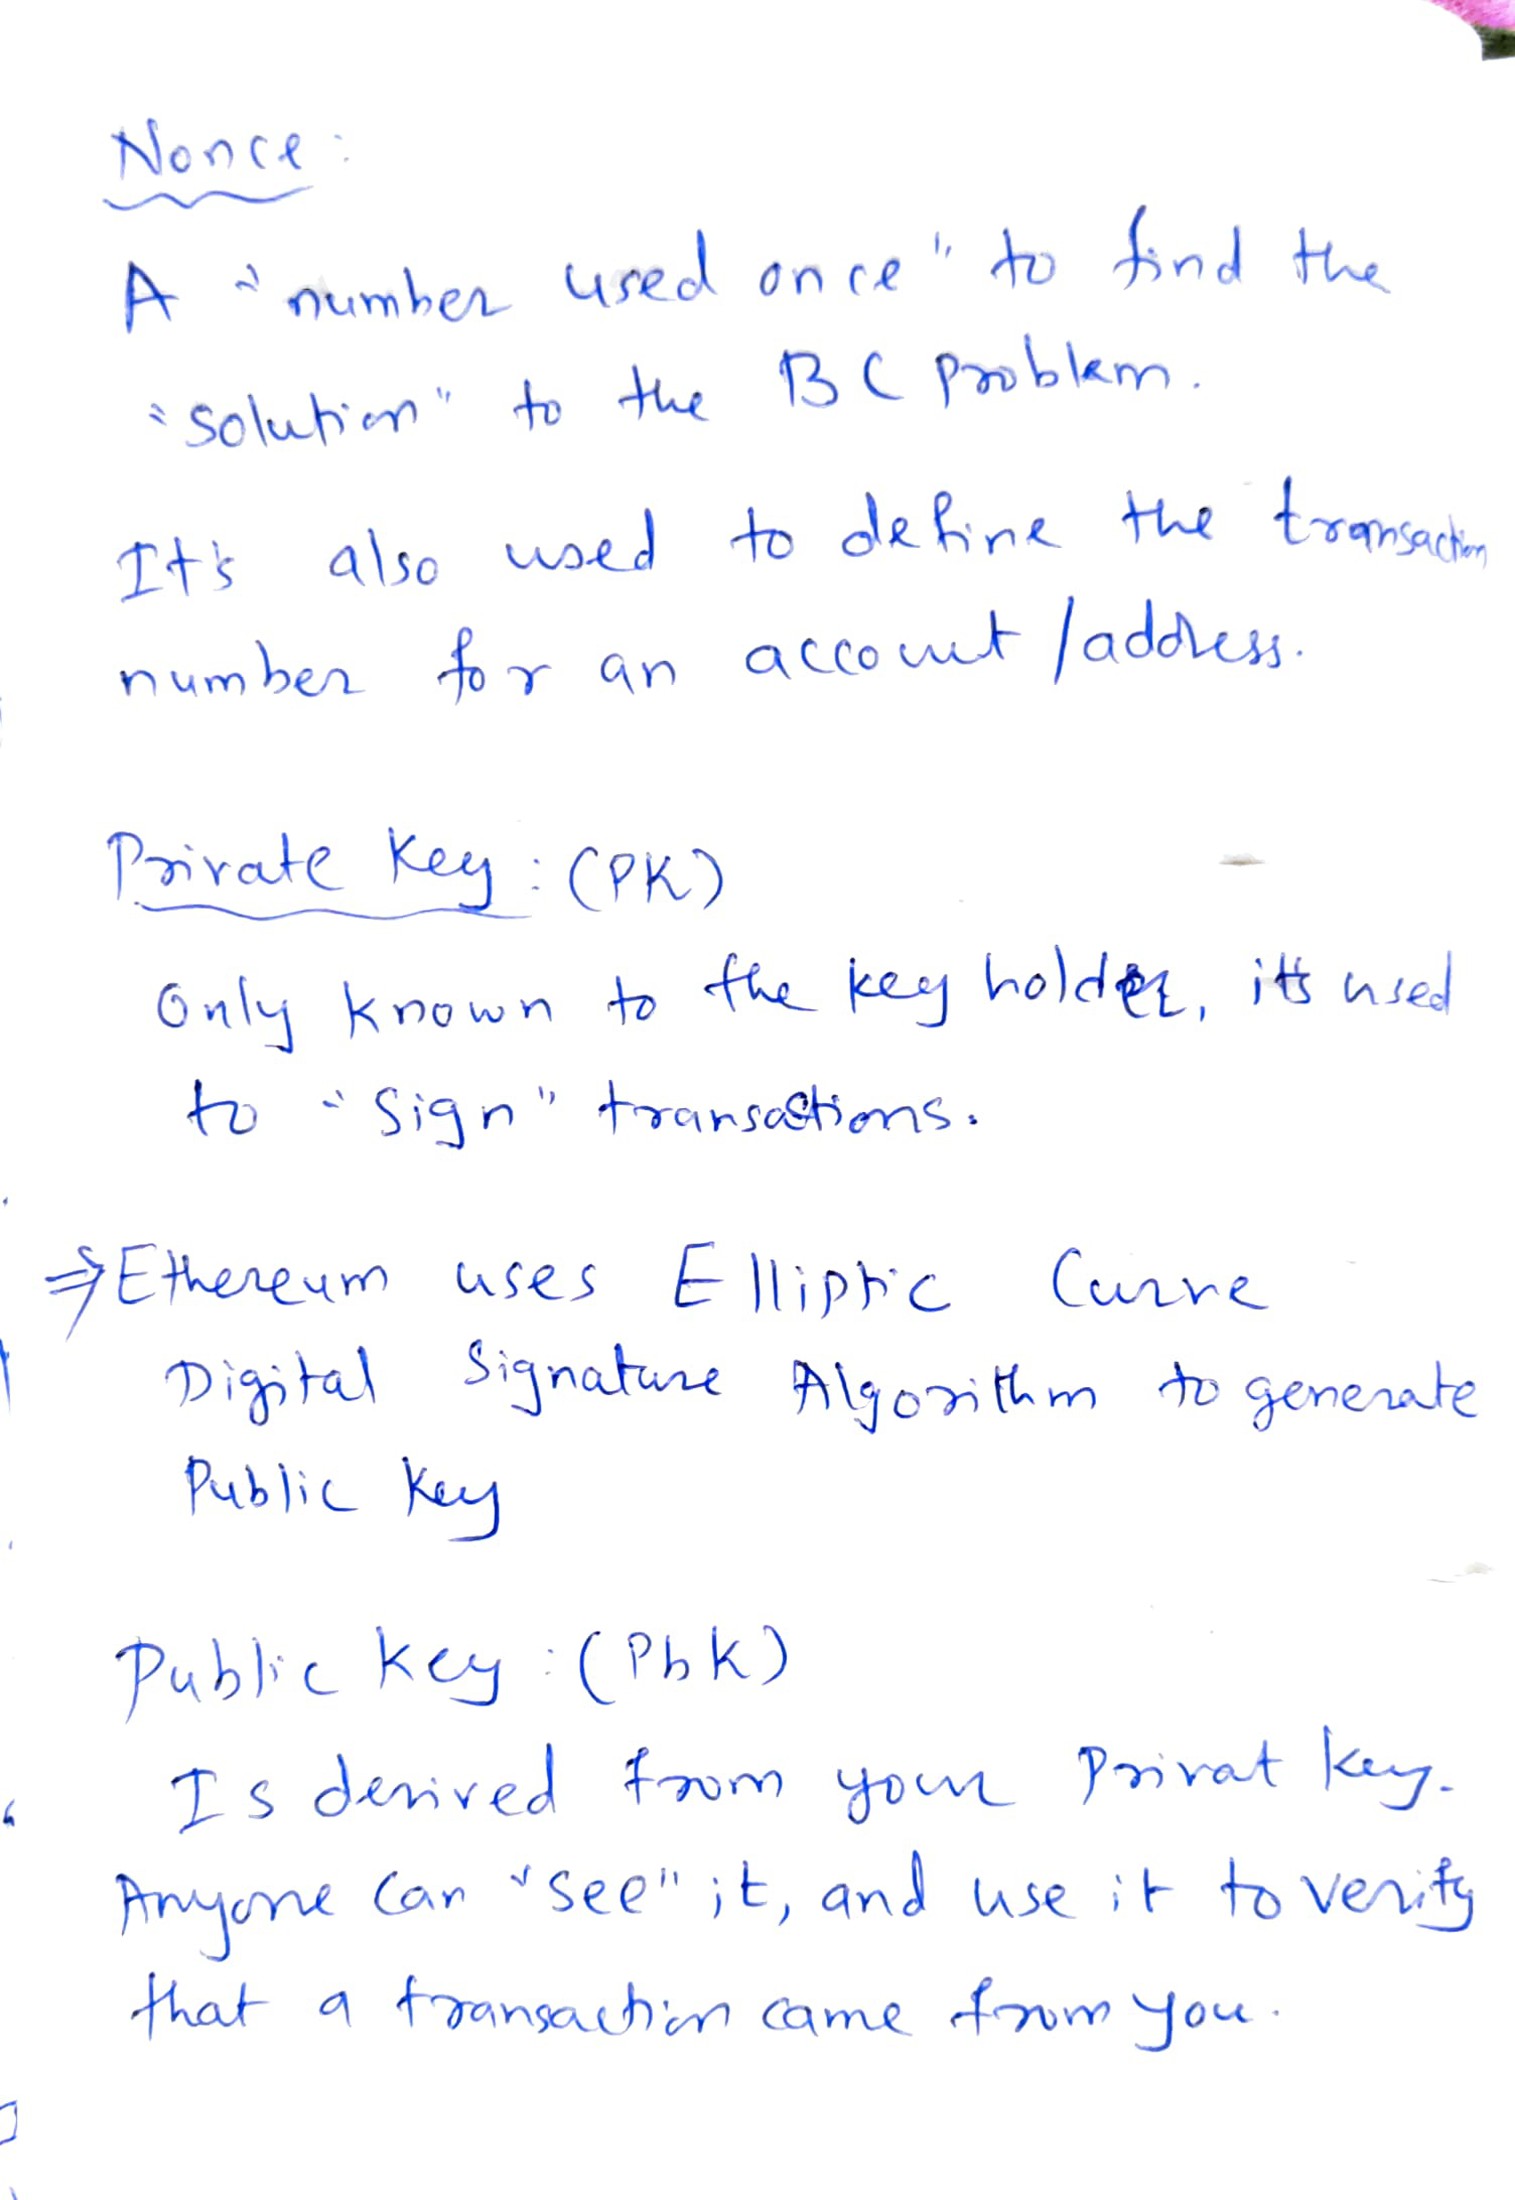 Nonce:
A "number used once" to find the
"solution" to the BC problem.
It's also used to define the transaction
number for an account /address.
Private Key: (PK)
Only known to the key holder, it's used
to "Sign" transactions.
⇒ Ethereum uses Elliptic Curve
Digital Signature Algorithm to generate
Public Key
Public Key: (PbK)
Is derived from your Privat Key.
Anyone can "see" it, and use it to verify
that a transaction came from you.